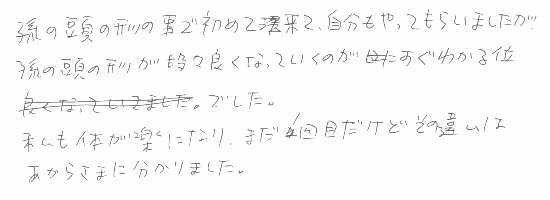 孫の頭の形の事で初めて来て、自分もやってもらいましたが、
孫の頭の形が段々良くなっていくのがすぐわかる位
良くなっていてました。でした。
私も体が楽になり、まだ4回目だけどその違いは
あからさまに分かりました。